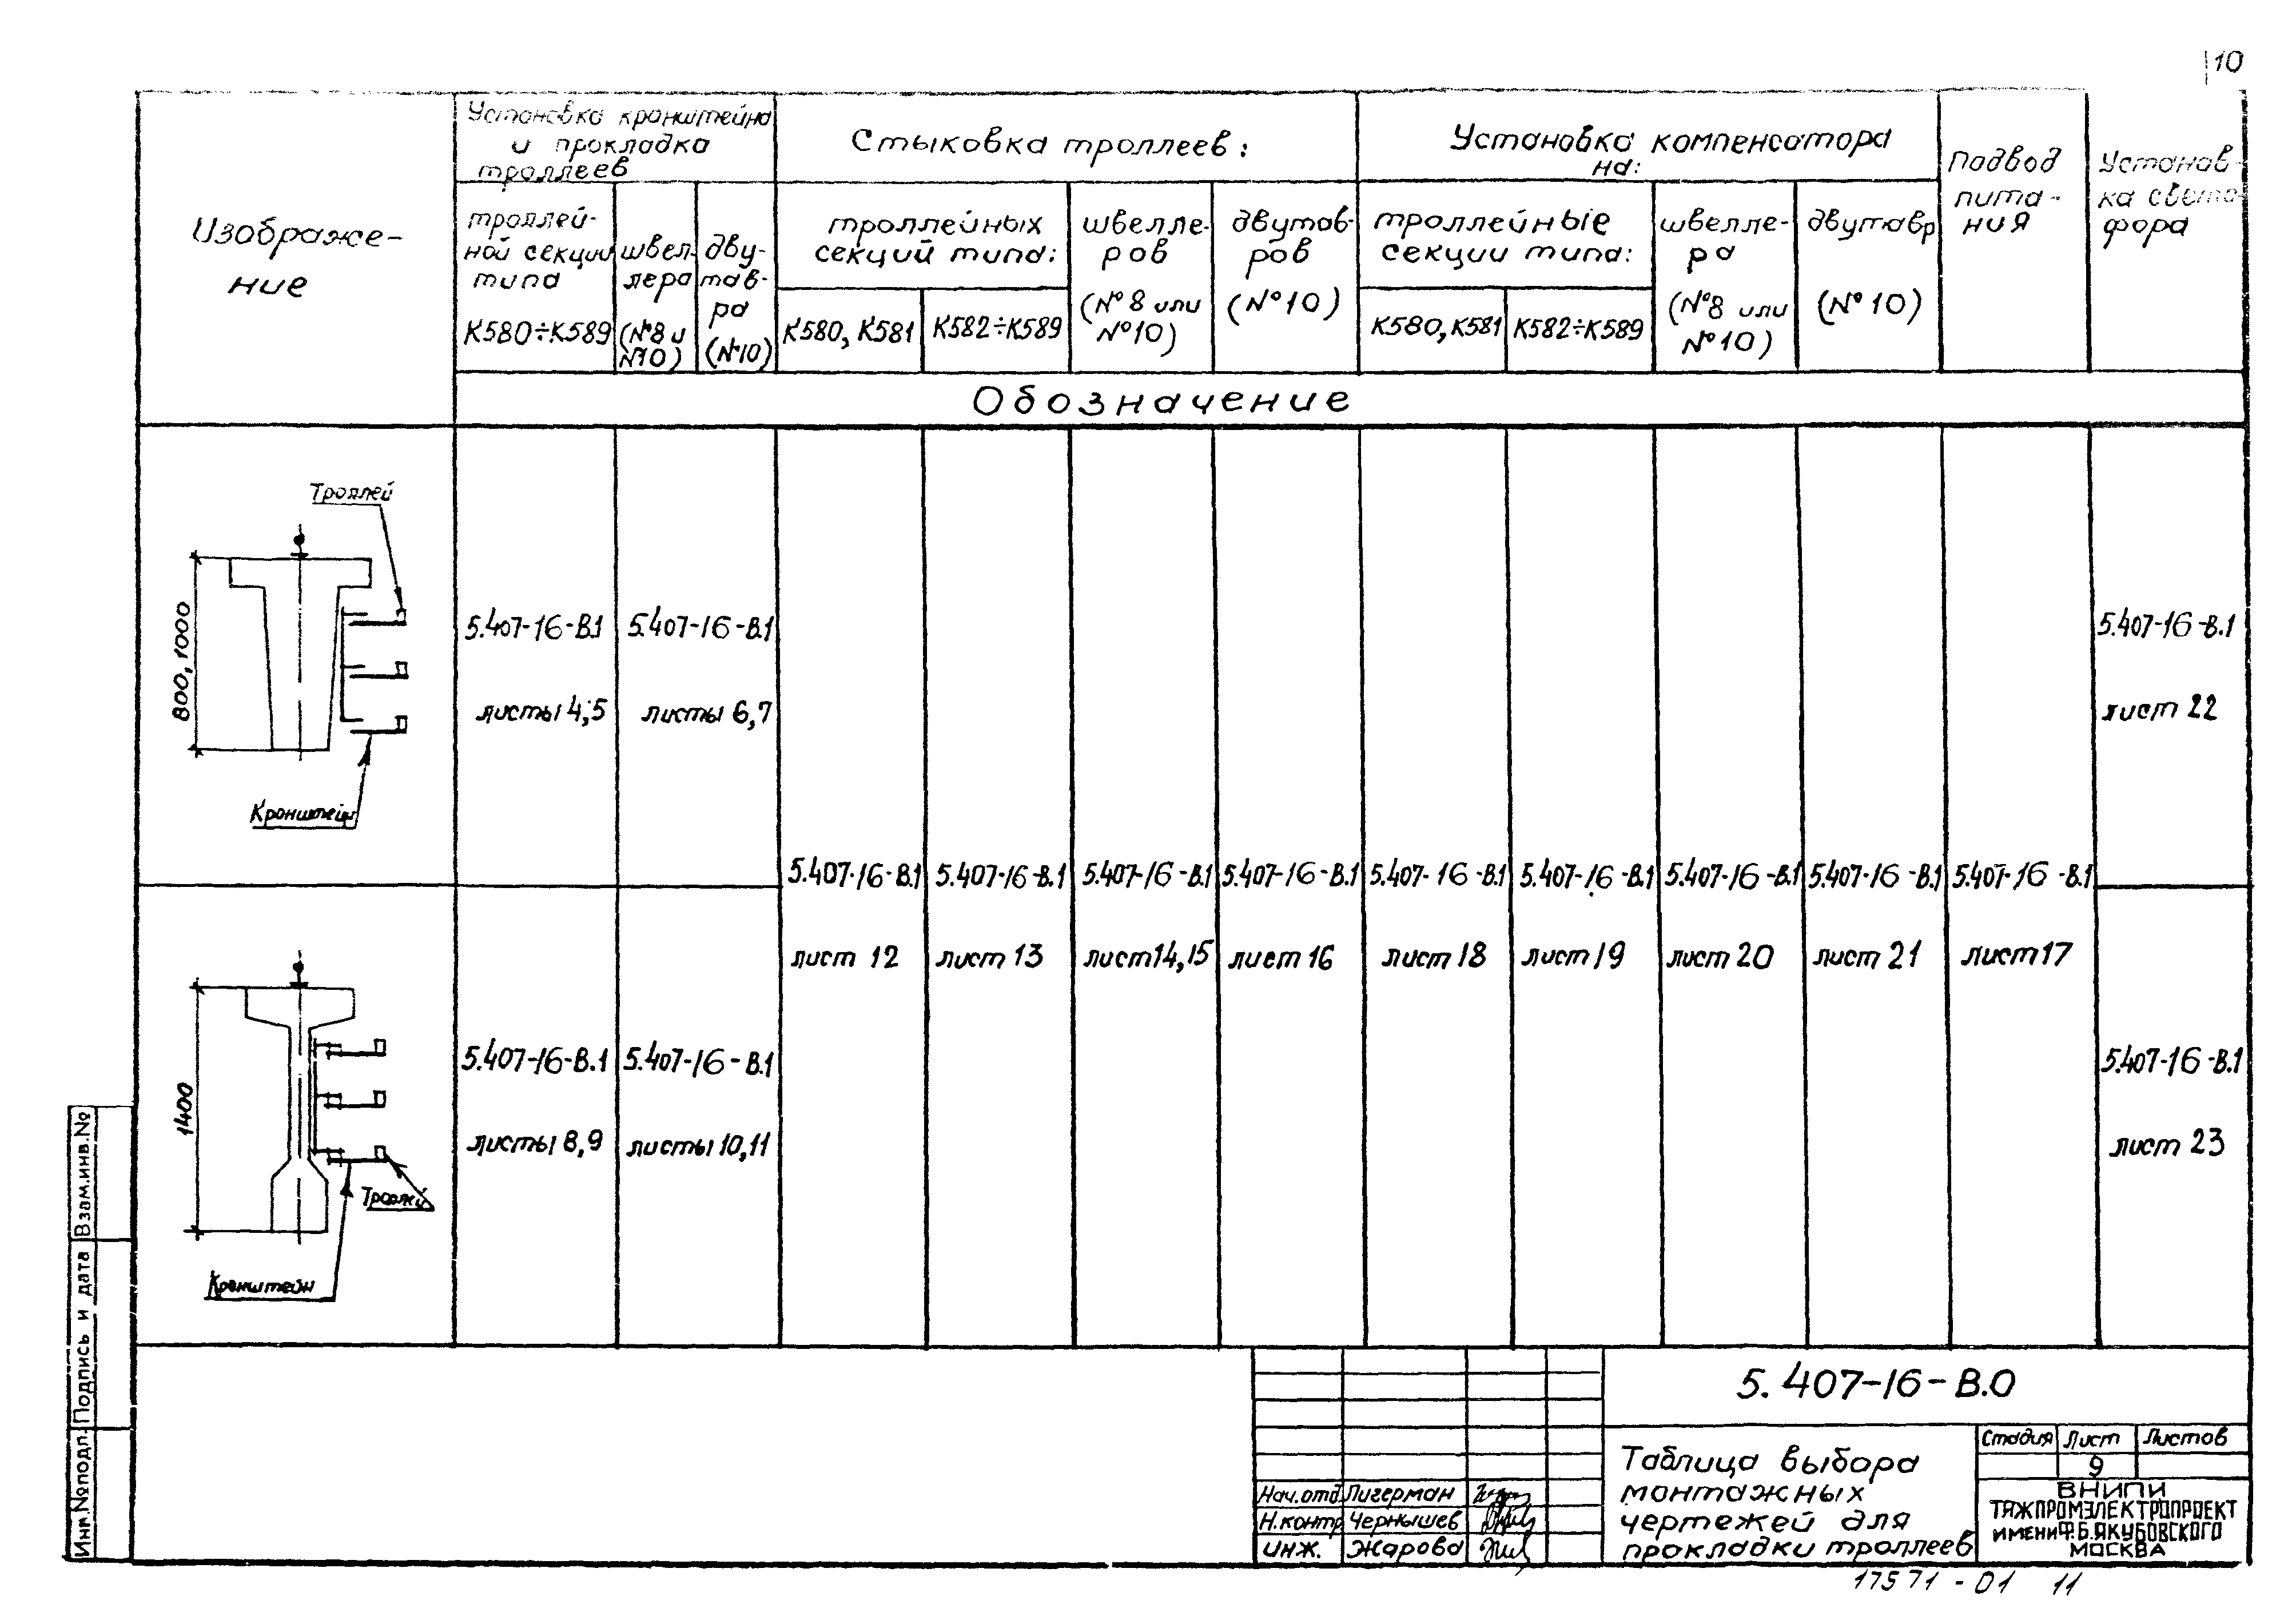 10
Изображе-
ние
Установка кронштейна
и прокладка
троллеев
троллей-
ной секции
типа
К580÷К589
швел-
лера
(№8 и
№10)
дву-
тав-
ра
(№10)
Стыковка троллеев:
троллейных
секций типа:
К580, К581
К582÷К589
швелле-
ров
(№8 или
№10)
двутав-
ров
(№10)
Установка компенсатора
на:
троллейные
секции типа:
К580, К581
К582÷К589
швелле-
ра
(№8 или
№10)
двутавр
(№10)
Подвод
пита-
ния
Установ-
ка свето-
фора
Обозначение
Троллей
800, 1000
Кронштейн
5.407-16-В.1
листы 4,5
5.407-16-В.1
листы 6,7
5.407-16-В.1
лист 22
5.407-16-В.1
лист 12
5.407-16-В.1
лист 13
5.407-16-В.1
лист 14,15
5.407-16-В.1
лист 16
5.407-16-В.1
лист 18
5.407-16-В.1
лист 19
5.407-16-В.1
лист 20
5.407-16-В.1
лист 21
5.407-16-В.1
лист 17
1400
Троллей
Кронштейн
5.407-16-В.1
листы 8,9
5.407-16-В.1
листы 10,11
5.407-16-В.1
лист 23
Взам.инв.№
Подпись и дата
Инв.№подл.
5.407-16-В.0
Нач.отд Лигерман
Н.контр Чернышев
инж. Жарова
Таблица выбора
монтажных
чертежей для
прокладки троллеев
Стадия Лист Листов
9
ВНИПИ
ТЯЖПРОМЭЛЕКТРОПРОЕКТ
ИМЕНИ Ф.Б.ЯКУБОВСКОГО
МОСКВА
17571-01 11